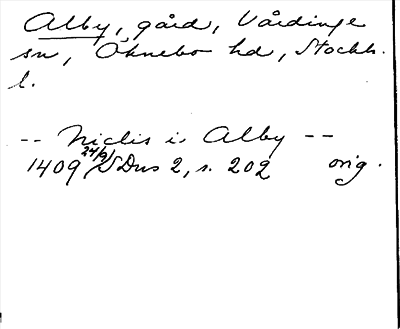 Alby, gård, Vårdinge
sn, Öknebo hd, Stockh.
l.
-- Niclis i Alby --
1409 24/9 SDns 2, s. 202 orig.